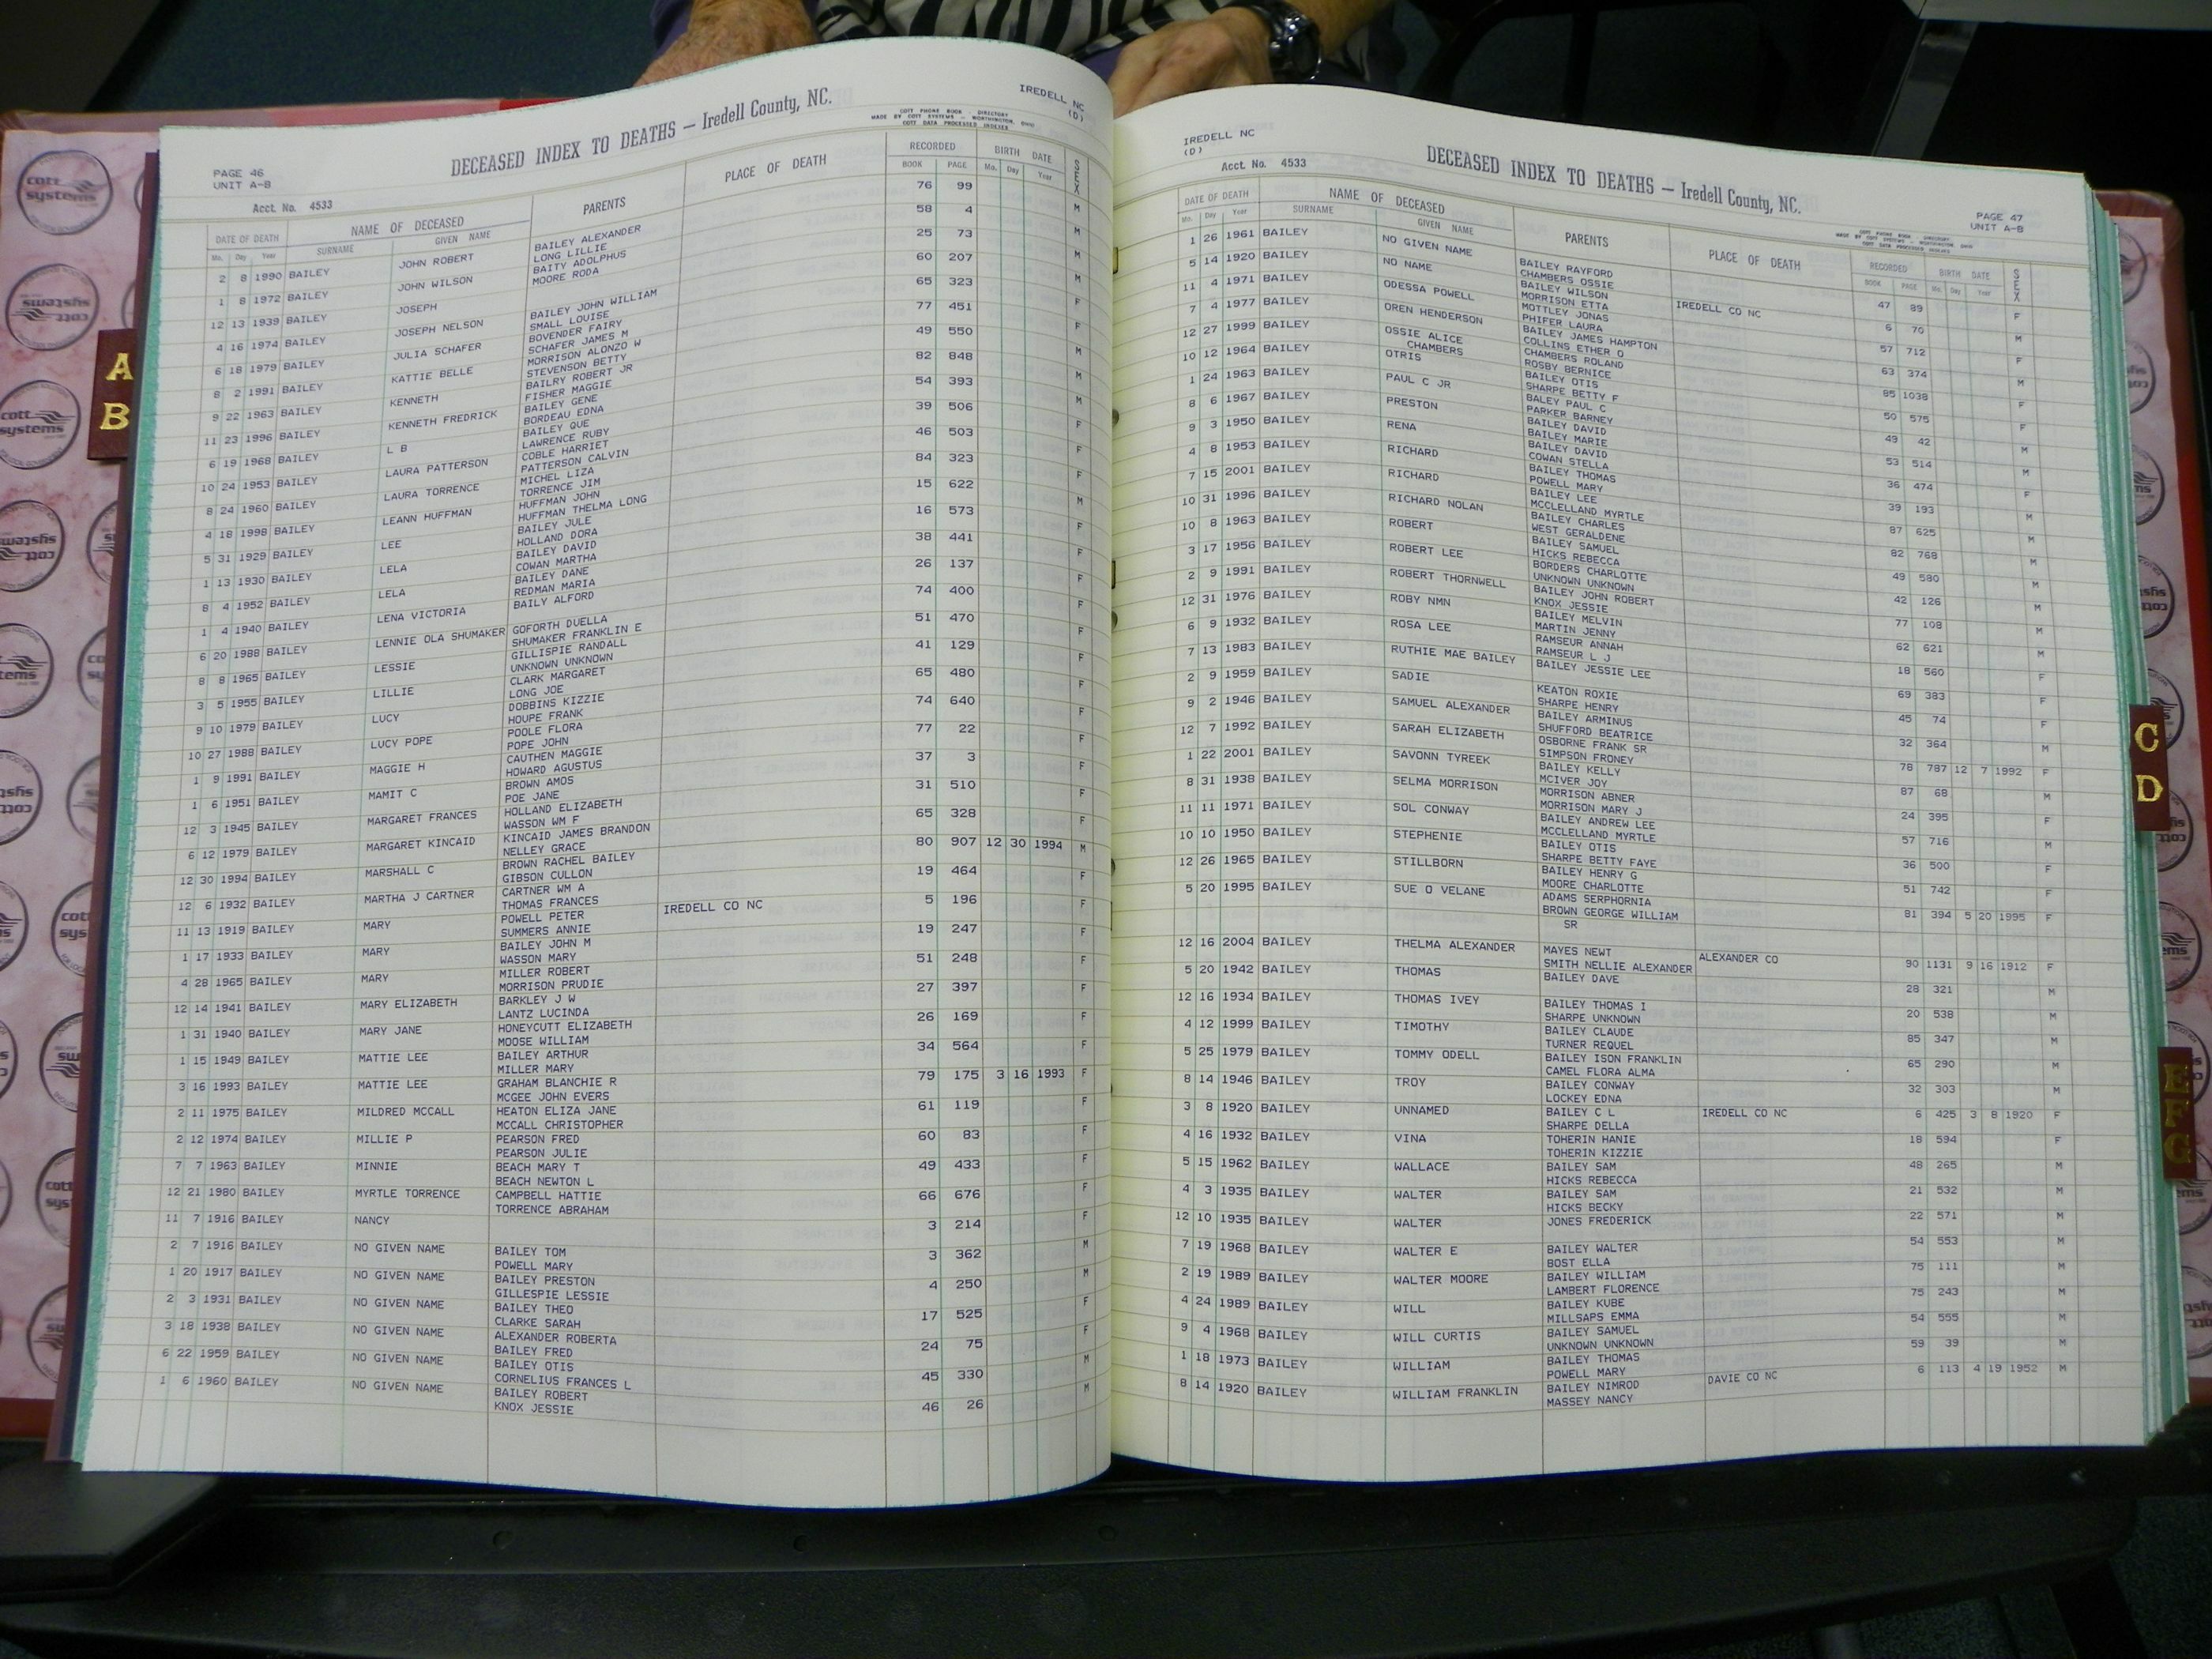 IREDELL NC
(D)
PAGE 46
UNIT A-B
DECEASED INDEX TO DEATHS — Iredell County, NC.
COTT PHONE BOOK DIRECTORY
MADE BY COTT SYSTEMS — WORTHINGTON, OHIO
COTT DATA PROCESSED INDEXES
Acct. No. 4533
DATE OF DEATH NAME OF DECEASED PARENTS PLACE OF DEATH RECORDED BIRTH DATE SEX
Mo. Day Year SURNAME GIVEN NAME BOOK PAGE Mo. Day Year
2 8 1990 BAILEY JOHN ROBERT BAILEY ALEXANDER 76 99 M
LONG LILLIE
1 8 1972 BAILEY JOHN WILSON BAITY ADOLPHUS 58 4 M
MOORE RODA
12 13 1939 BAILEY JOSEPH 25 73 M
4 16 1974 BAILEY JOSEPH NELSON BAILEY JOHN WILLIAM 60 207 M
SMALL LOUISE
6 18 1979 BAILEY JULIA SCHAFER BOVENDER FAIRY 65 323 F
SCHAFER JAMES M
8 2 1991 BAILEY KATTIE BELLE MORRISON ALONZO W 77 451 F
STEVENSON BETTY
9 22 1963 BAILEY KENNETH BAILRY ROBERT JR 49 550 M
FISHER MAGGIE
11 23 1996 BAILEY KENNETH FREDRICK BAILEY GENE 82 848 M
BORDEAU EDNA
6 19 1968 BAILEY L B BAILEY QUE 54 393 M
LAWRENCE RUBY
10 24 1953 BAILEY LAURA PATTERSON COBLE HARRIET 39 506 F
PATTERSON CALVIN
8 24 1960 BAILEY LAURA TORRENCE MICHEL LIZA 46 503 F
TORRENCE JIM
4 18 1998 BAILEY LEANN HUFFMAN HUFFMAN JOHN 84 323 F
HUFFMAN THELMA LONG
5 31 1929 BAILEY LEE BAILEY JULE 15 622 M
HOLLAND DORA
1 13 1930 BAILEY LELA BAILEY DAVID 16 573 F
COWAN MARTHA
8 4 1952 BAILEY LELA BAILEY DANE 38 441 F
REDMAN MARIA
1 4 1940 BAILEY LENA VICTORIA BAILY ALFORD 26 137 F
6 20 1988 BAILEY LENNIE OLA SHUMAKER GOFORTH DUELLA 74 400 F
SHUMAKER FRANKLIN E
8 8 1965 BAILEY LESSIE GILLISPIE RANDALL 51 470 F
UNKNOWN UNKNOWN
3 5 1955 BAILEY LILLIE CLARK MARGARET 41 129 F
LONG JOE
9 10 1979 BAILEY LUCY DOBBINS KIZZIE 65 480 F
HOUPE FRANK
10 27 1988 BAILEY LUCY POPE POOLE FLORA 74 640 F
POPE JOHN
1 9 1991 BAILEY MAGGIE H CAUTHEN MAGGIE 77 22 F
HOWARD AGUSTUS
1 6 1951 BAILEY MAMIT C BROWN AMOS 37 3 F
POE JANE
12 3 1945 BAILEY MARGARET FRANCES HOLLAND ELIZABETH 31 510 F
WASSON WM F
6 12 1979 BAILEY MARGARET KINCAID KINCAID JAMES BRANDON 65 328 F
NELLEY GRACE
12 30 1994 BAILEY MARSHALL C BROWN RACHEL BAILEY 80 907 12 30 1994 M
GIBSON CULLON
12 6 1932 BAILEY MARTHA J CARTNER CARTNER WM A 19 464 F
THOMAS FRANCES
11 13 1919 BAILEY MARY POWELL PETER IREDELL CO NC 5 196 F
SUMMERS ANNIE
1 17 1933 BAILEY MARY BAILEY JOHN M 19 247 F
WASSON MARY
4 28 1965 BAILEY MARY MILLER ROBERT 51 248 F
MORRISON PRUDIE
12 14 1941 BAILEY MARY ELIZABETH BARKLEY J W 27 397 F
LANTZ LUCINDA
1 31 1940 BAILEY MARY JANE HONEYCUTT ELIZABETH 26 169 F
MOOSE WILLIAM
1 15 1949 BAILEY MATTIE LEE BAILEY ARTHUR 34 564 F
MILLER MARY
3 16 1993 BAILEY MATTIE LEE GRAHAM BLANCHIE R 79 175 3 16 1993 F
MCGEE JOHN EVERS
2 11 1975 BAILEY MILDRED MCCALL HEATON ELIZA JANE 61 119 F
MCCALL CHRISTOPHER
2 12 1974 BAILEY MILLIE P PEARSON FRED 60 83 F
PEARSON JULIE
7 7 1963 BAILEY MINNIE BEACH MARY T 49 433 F
BEACH NEWTON L
12 21 1980 BAILEY MYRTLE TORRENCE CAMPBELL HATTIE 66 676 F
TORRENCE ABRAHAM
11 7 1916 BAILEY NANCY 3 214 F
2 7 1916 BAILEY NO GIVEN NAME BAILEY TOM 3 362 M
POWELL MARY
1 20 1917 BAILEY NO GIVEN NAME BAILEY PRESTON 4 250 M
GILLESPIE LESSIE
2 3 1931 BAILEY NO GIVEN NAME BAILEY THEO 17 525 F
CLARKE SARAH
3 18 1938 BAILEY NO GIVEN NAME ALEXANDER ROBERTA 24 75 F
BAILEY FRED
6 22 1959 BAILEY NO GIVEN NAME BAILEY OTIS 45 330 M
CORNELIUS FRANCES L
1 6 1960 BAILEY NO GIVEN NAME BAILEY ROBERT 46 26 M
KNOX JESSIE
IREDELL NC
(D)
Acct. No. 4533
DECEASED INDEX TO DEATHS — Iredell County, NC.
PAGE 47
UNIT A-B
COTT PHONE BOOK DIRECTORY
MADE BY COTT SYSTEMS — WORTHINGTON, OHIO
COTT DATA PROCESSED INDEXES
DATE OF DEATH NAME OF DECEASED PARENTS PLACE OF DEATH RECORDED BIRTH DATE SEX
Mo. Day Year SURNAME GIVEN NAME BOOK PAGE Mo. Day Year
1 26 1961 BAILEY NO GIVEN NAME BAILEY RAYFORD 47 89 F
CHAMBERS OSSIE
5 14 1920 BAILEY NO NAME BAILEY WILSON IREDELL CO NC 6 70 M
MORRISON ETTA
11 4 1971 BAILEY ODESSA POWELL MOTTLEY JONAS 57 712 F
PHIFER LAURA
7 4 1977 BAILEY OREN HENDERSON BAILEY JAMES HAMPTON 63 374 M
COLLINS ETHER O
12 27 1999 BAILEY OSSIE ALICE CHAMBERS ROLAND 85 1038 F
CHAMBERS ROSBY BERNICE
10 12 1964 BAILEY OTRIS BAILEY OTIS 50 575 F
SHARPE BETTY F
1 24 1963 BAILEY PAUL C JR BALEY PAUL C 49 42 M
PARKER BARNEY
8 6 1967 BAILEY PRESTON BAILEY DAVID 53 514 M
BAILEY MARIE
9 3 1950 BAILEY RENA BAILEY DAVID 36 474 F
COWAN STELLA
4 8 1953 BAILEY RICHARD BAILEY THOMAS 39 193 M
POWELL MARY
7 15 2001 BAILEY RICHARD BAILEY LEE 87 625 M
MCCLELLAND MYRTLE
10 31 1996 BAILEY RICHARD NOLAN BAILEY CHARLES 82 768 M
WEST GERALDENE
10 8 1963 BAILEY ROBERT BAILEY SAMUEL 49 580 M
HICKS REBECCA
3 17 1956 BAILEY ROBERT LEE BORDERS CHARLOTTE 42 126 M
UNKNOWN UNKNOWN
2 9 1991 BAILEY ROBERT THORNWELL BAILEY JOHN ROBERT 77 108 M
KNOX JESSIE
12 31 1976 BAILEY ROBY NMN BAILEY MELVIN 62 621 M
MARTIN JENNY
6 9 1932 BAILEY ROSA LEE RAMSEUR ANNAH 18 560 F
RAMSEUR L J
7 13 1983 BAILEY RUTHIE MAE BAILEY BAILEY JESSIE LEE 69 383
2 9 1959 BAILEY SADIE KEATON ROXIE 45 74 F
SHARPE HENRY
9 2 1946 BAILEY SAMUEL ALEXANDER BAILEY ARMINUS 32 364 M
SHUFFORD BEATRICE
12 7 1992 BAILEY SARAH ELIZABETH OSBORNE FRANK SR 78 787 12 7 1992 F
SIMPSON FRONEY
1 22 2001 BAILEY SAVONN TYREEK BAILEY KELLY 87 68 M
MCIVER JOY
8 31 1938 BAILEY SELMA MORRISON MORRISON ABNER 24 395 F
MORRISON MARY J
11 11 1971 BAILEY SOL CONWAY BAILEY ANDREW LEE 57 716 M
MCCLELLAND MYRTLE
10 10 1950 BAILEY STEPHENIE BAILEY OTIS 36 500 F
SHARPE BETTY FAYE
12 26 1965 BAILEY STILLBORN BAILEY HENRY G 51 742 F
MOORE CHARLOTTE
5 20 1995 BAILEY SUE O VELANE ADAMS SERPHORNIA 81 394 5 20 1995 F
BROWN GEORGE WILLIAM
SR
12 16 2004 BAILEY THELMA ALEXANDER MAYES NEWT ALEXANDER CO 90 1131 9 16 1912 F
SMITH NELLIE ALEXANDER
5 20 1942 BAILEY THOMAS BAILEY DAVE 28 321 M
12 16 1934 BAILEY THOMAS IVEY BAILEY THOMAS I 20 538 M
SHARPE UNKNOWN
4 12 1999 BAILEY TIMOTHY BAILEY CLAUDE 85 347 M
TURNER REQUEL
5 25 1979 BAILEY TOMMY ODELL BAILEY ISON FRANKLIN 65 290 M
CAMEL FLORA ALMA
8 14 1946 BAILEY TROY BAILEY CONWAY 32 303 M
LOCKEY EDNA
3 8 1920 BAILEY UNNAMED BAILEY C L IREDELL CO NC 6 425 3 8 1920 F
SHARPE DELLA
4 16 1932 BAILEY VINA TOHERIN HANIE 18 594 F
TOHERIN KIZZIE
5 15 1962 BAILEY WALLACE BAILEY SAM 48 265 M
HICKS REBECCA
4 3 1935 BAILEY WALTER BAILEY SAM 21 532 M
HICKS BECKY
12 10 1935 BAILEY WALTER JONES FREDERICK 22 571 M
7 19 1968 BAILEY WALTER E BAILEY WALTER 54 553 M
BOST ELLA
2 19 1989 BAILEY WALTER MOORE BAILEY WILLIAM 75 111 M
LAMBERT FLORENCE
4 24 1989 BAILEY WILL BAILEY KUBE 75 243 M
MILLSAPS EMMA
9 4 1968 BAILEY WILL CURTIS BAILEY SAMUEL 54 555 M
UNKNOWN UNKNOWN
1 18 1973 BAILEY WILLIAM BAILEY THOMAS 59 39 M
POWELL MARY
8 14 1920 BAILEY WILLIAM FRANKLIN BAILEY NIMROD DAVIE CO NC 6 113 4 19 1952 M
MASSEY NANCY
A
B
C
D
E
F
G
cott
systems